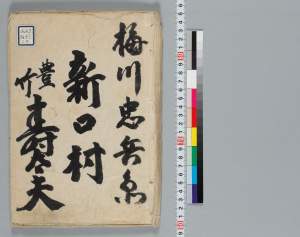 梅川忠兵衛
新口村
豊竹
寿太夫